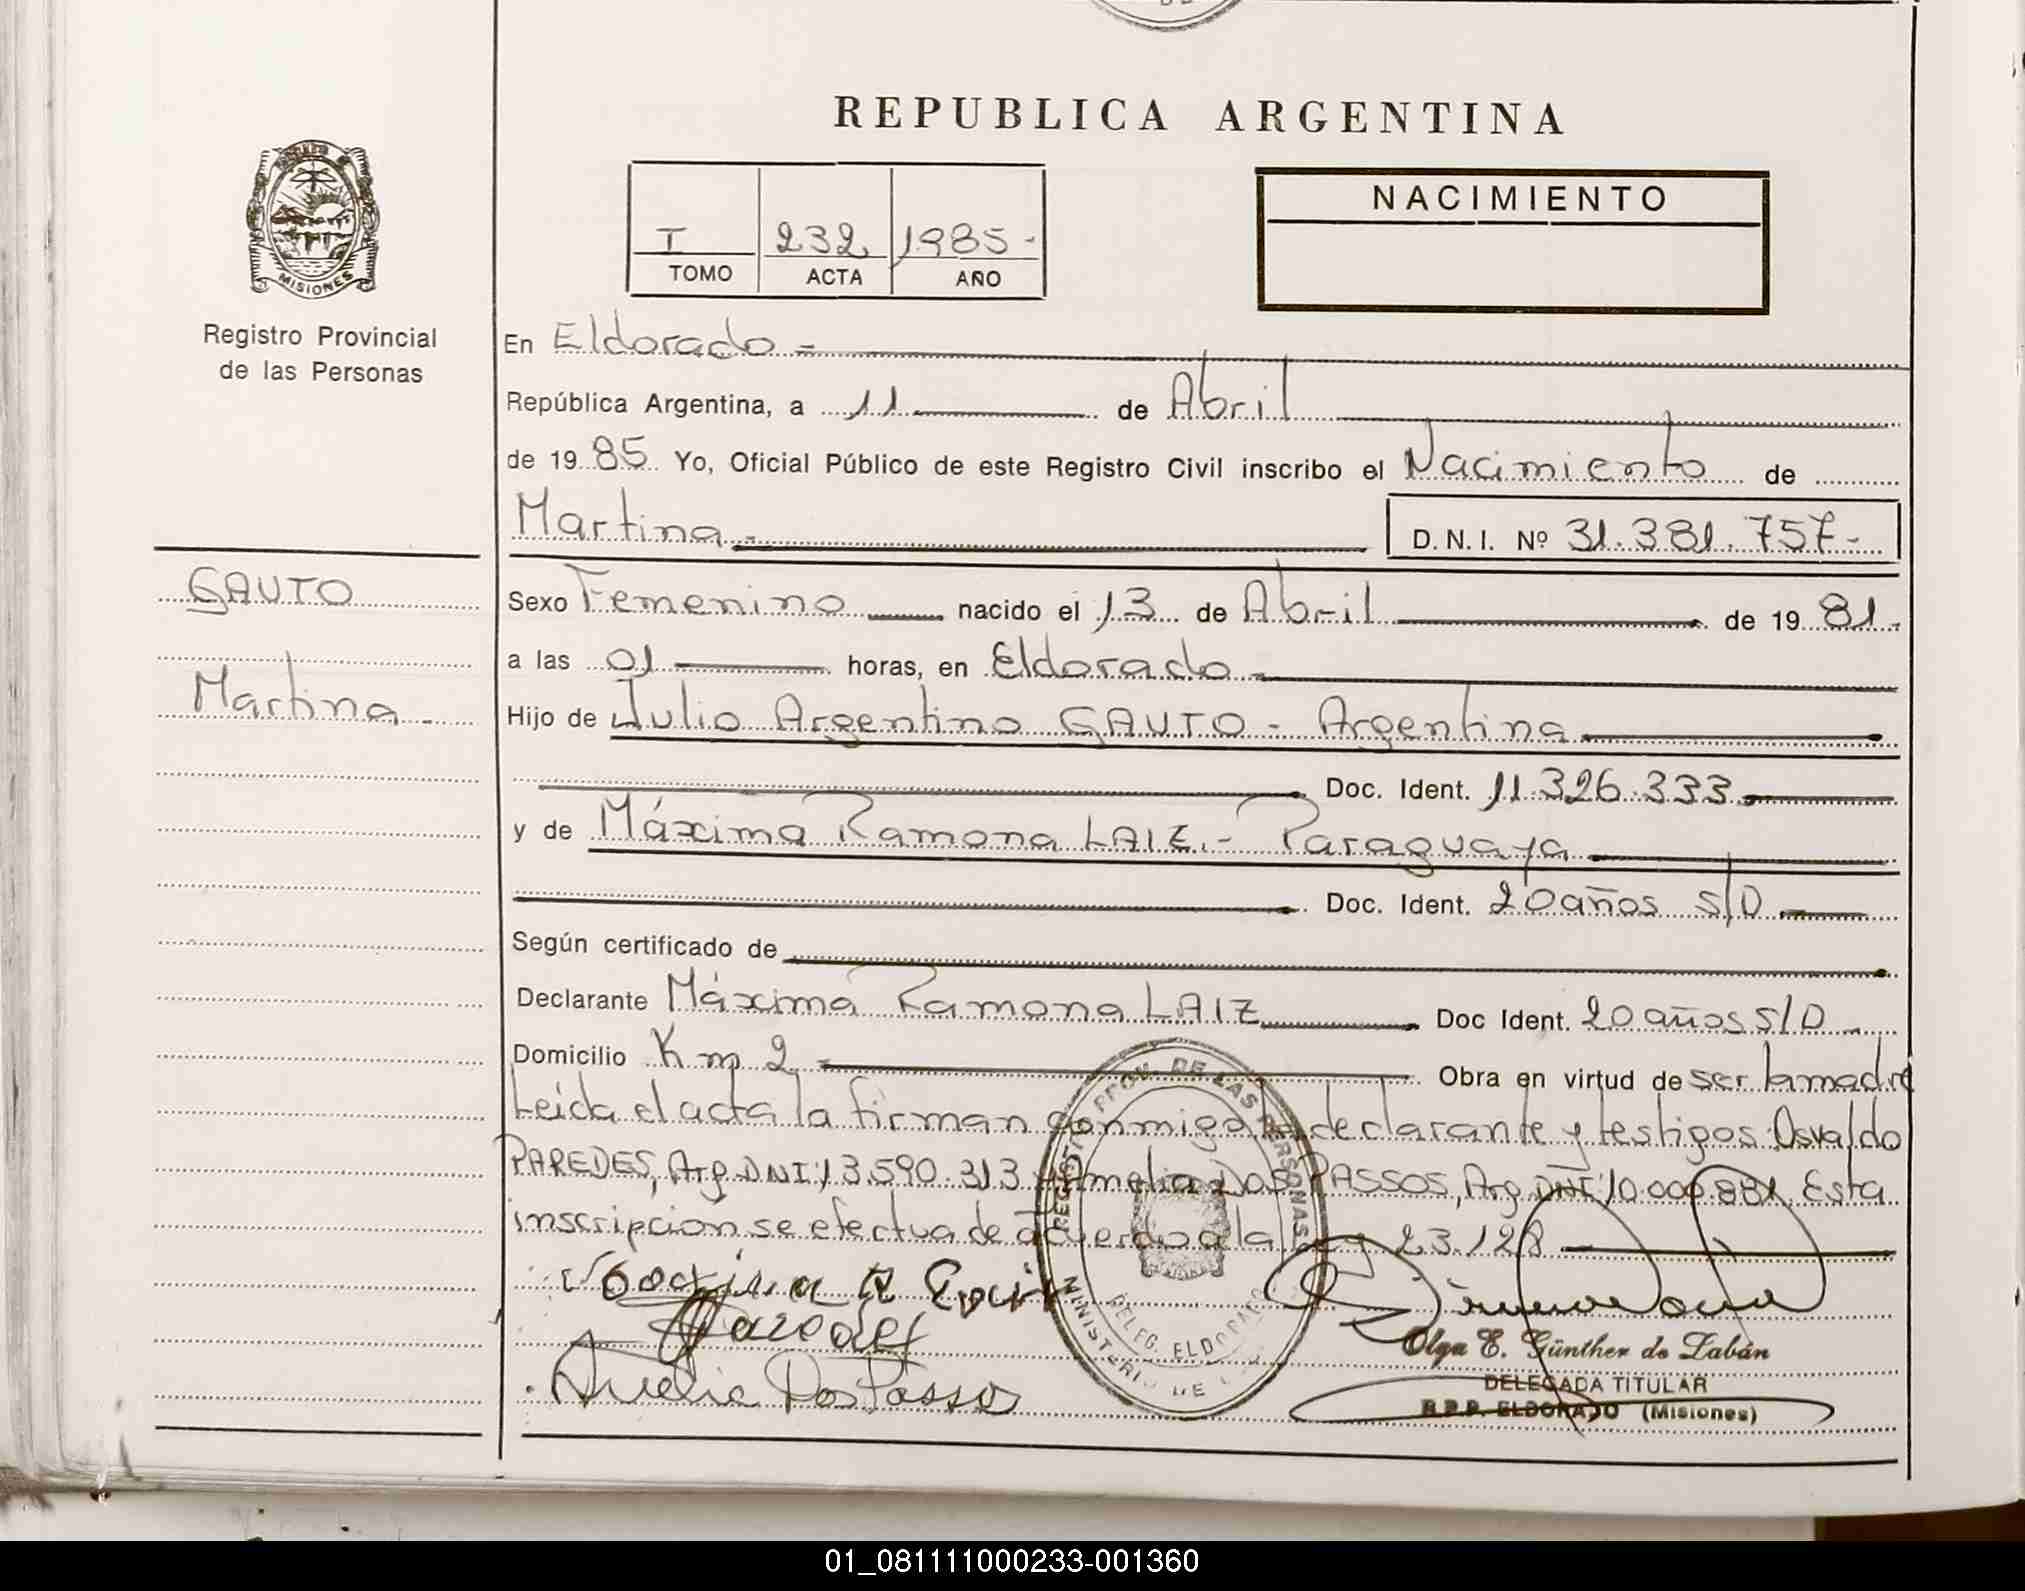 REPUBLICA ARGENTINA
NACIMIENTO
I 232 1985-
TOMO ACTA AÑO
MISIONES
Registro Provincial
de las Personas
En Eldorado -
República Argentina, a 11 de Abril
de 1985 Yo, Oficial Público de este Registro Civil inscribo el Nacimiento de
Martina - D.N.I. Nº 31.381.757-
GAUTO
Martina -
Sexo Femenino nacido el 13 de Abril de 1981-
a las 01 horas, en Eldorado -
Hijo de Julio Argentino GAUTO - Argentina
Doc. Ident. 11.326.333
y de Máxima Ramona LAIZ.- Paraguaya
Doc. Ident. 20 años s/D
Según certificado de
Declarante Máxima Ramona LAIZ Doc Ident. 20 años s/D
Domicilio Km 2 Obra en virtud de ser la madre
Leida el acta la firman conmigo la declarante y testigos: Osvaldo
PAREDES, Arg. DNI 13.590.313 Amelia DOS PASSOS, Arg. DNI 10.000.881. Esta
inscripción se efectua de acuerdo a la Ley 23.128
REGISTRO PROV. DE LAS PERSONAS
DELEG. ELDORADO
MINISTERIO DE
Paredes
Amelia Dos Passos
Olga E. Günther de Labán
DELEGADA TITULAR
R.P.P. ELDORADO (Misiones)
01_081111000233-001360